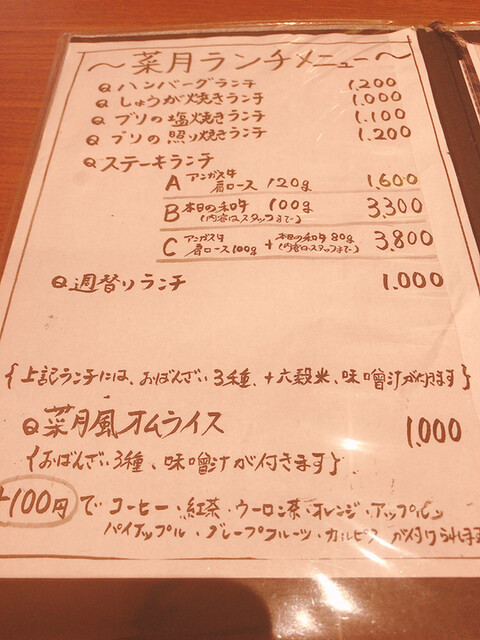 ～菜月ランチメニュー～
ハンバーグランチ 1,200
しょうが焼きランチ 1,000
ブリの塩焼きランチ 1,100
ブリの照り焼きランチ 1,200
ステーキランチ
A アンガス牛 肩ロース 120g 1,600
B 本日の和牛 100g (内容はスタッフまで) 3,300
C アンガス牛 肩ロース100g + 本日の和牛 80g (内容はスタッフまで) 3,800
週替りランチ 1,000
{上記ランチには、おばんざい3種、+六穀米、味噌汁が付きます}
菜月風オムライス 1,000
{おばんざい3種、味噌汁が付きます}
+100円で コーヒー・紅茶・ウーロン茶・オレンジ・アップル、
パイナップル・グレープフルーツ・カルピス が付けられます